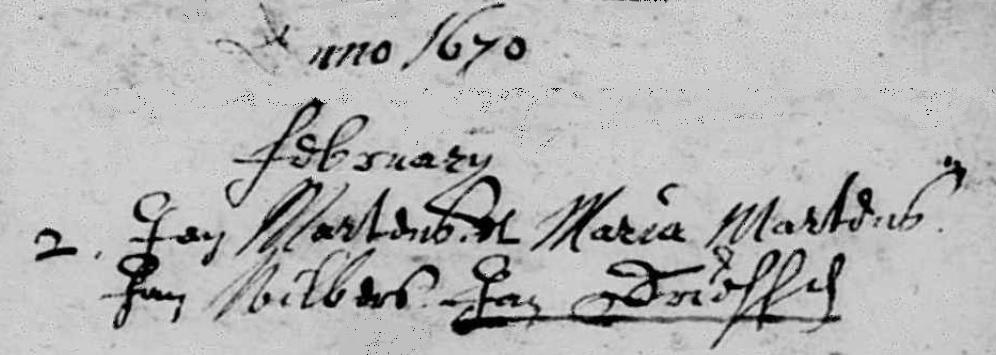 Anno 1670
February
2. Jan Martens et Maria Martens
Jan Wilbers Jan